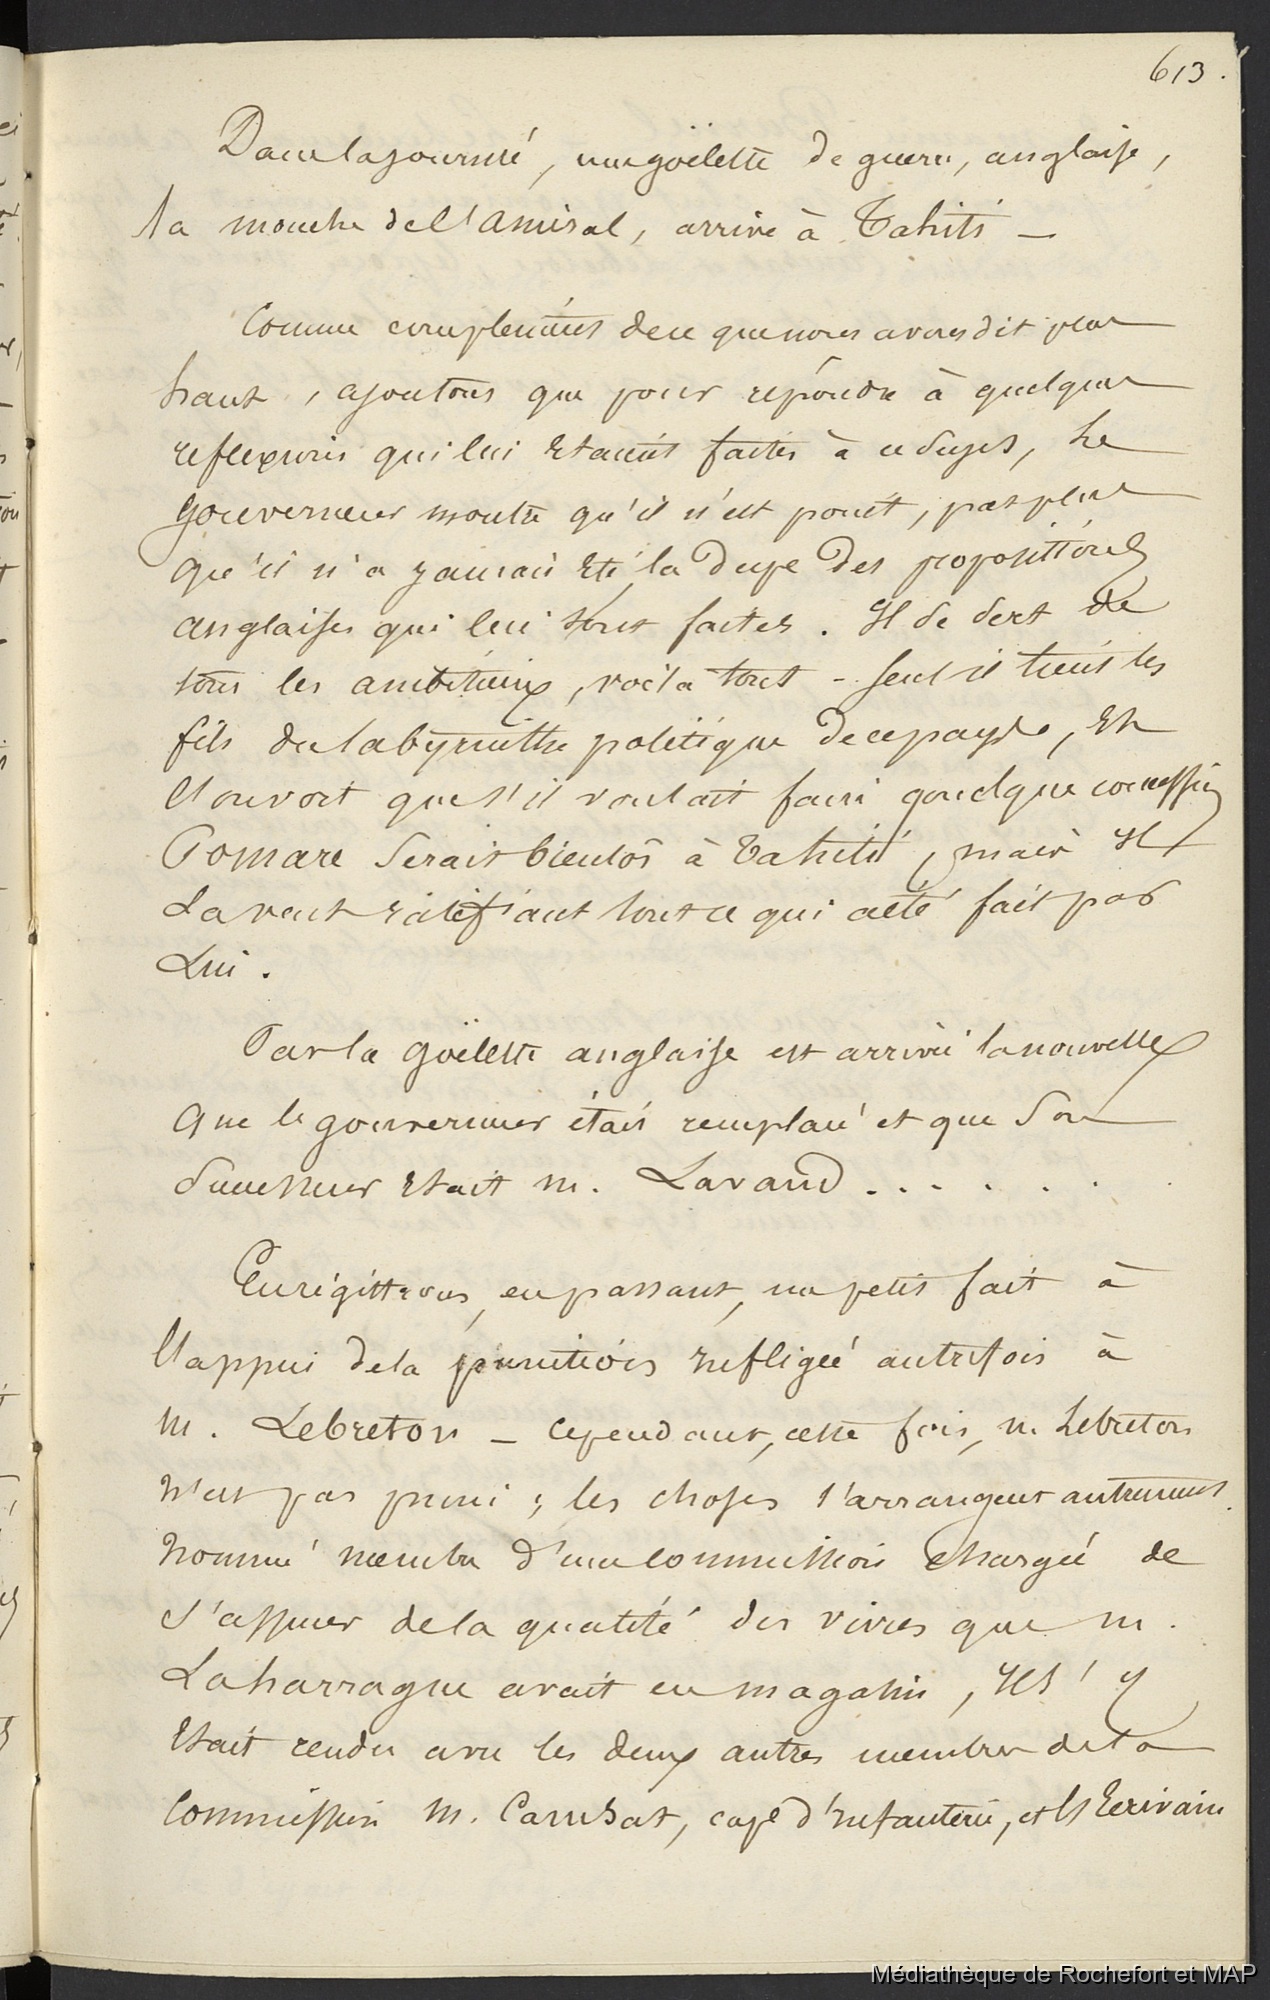 613.
Dans la journée, une goëlette de guerre, anglaise,
la mouche de l'amiral, arrive à Tahiti —
Comme compléments de ce que nous avons dit plus
haut, ajoutons que pour répondre à quelques
reflexions qui lui etaient faites à ce sujet, Le
gouverneur montre qu'il n'est point, pas plus
qu'il n'a jamais été, la dupe des propositions
anglaises qui lui sont faites. Il se sert de
tous les ambitieux, voila tout - seul il tient les
fils du labyrinthe politique de ce pays, Et
l'on voit que s'il voulait faire quelque concession
Pomare serait bientôt à Tahiti, mais Il
La veut ratifiant tout ce qui a été fait par
Lui.
Par la goëlette anglaise est arrivée la nouvelle
que le gouverneur était remplacé et que son
successeur etait m. Lavaud . . . . . . .
Enrégittrons, en passant, un petit fait à
l'appui de la punition infligée autrefois à
m. Lebreton — cependant, cette fois, m. Lebreton
n'est pas puni ; les choses s'arrangent autrement.
Nommé membre d'une commission chargée de
s'assurer de la qualité des vivres que m.
Laharrague avait en magasin, Il s'y
etait rendu avec les deux autres membres de la
commission m. Carusat, cap.e d'infanterie, et l'Ecrivain
Médiathèque de Rochefort et MAP